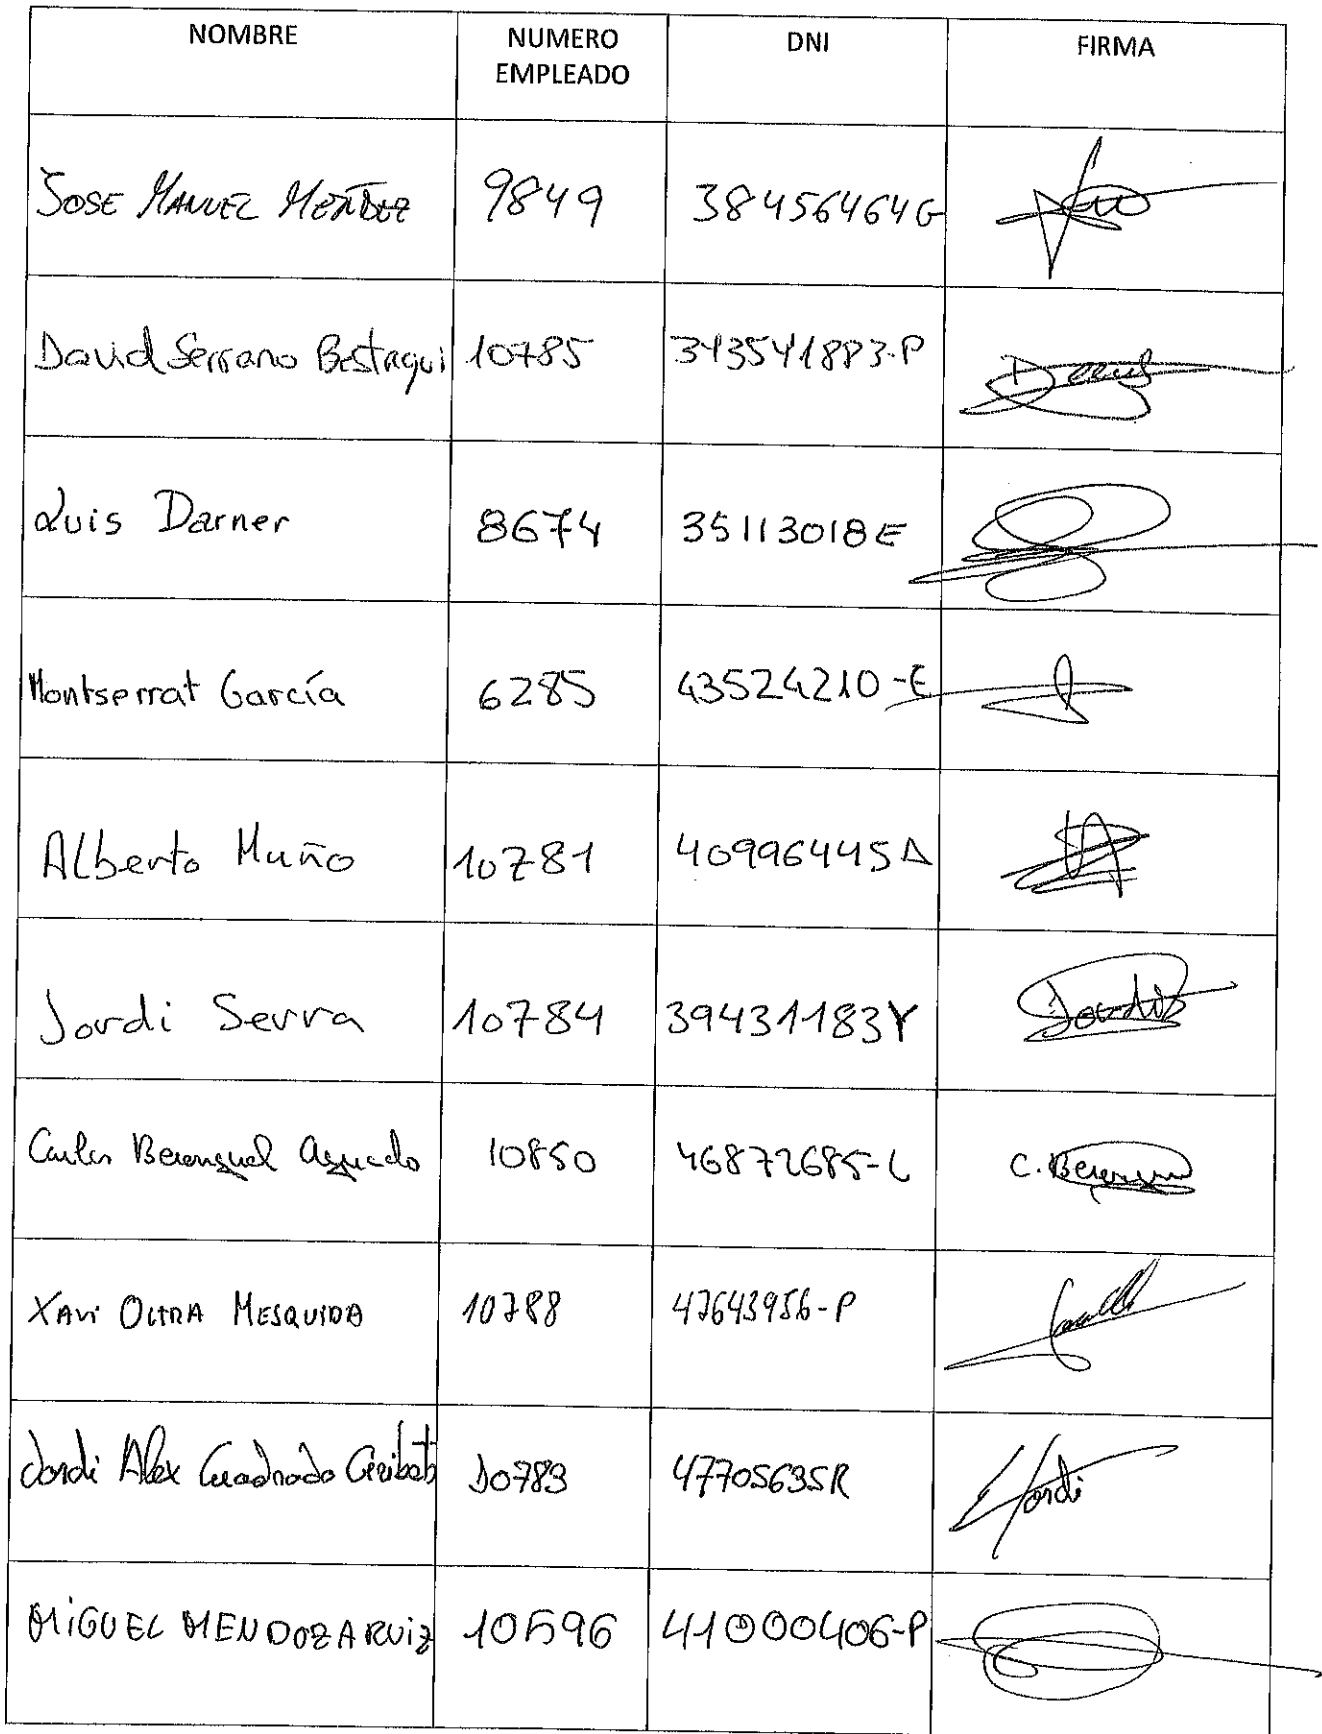 NOMBRE NUMERO EMPLEADO DNI FIRMA
JOSE MANUEL MENDEZ 9849 38456464G
David Serrano Bestraqui 10785 343541883-P David
Luis Darner 8674 35113018E
Montserrat García 6285 43524210-E
Alberto Muño 10781 40996445A
Jordi Serra 10784 39431183Y Jordi S
Carlos Berenguel Aguado 10850 46872685-L C. Berenguel
XAVI OLTRA MESQUIDA 10788 47643956-P
Jordi Alex Cuadrado 10783 47705635R Jordi
MIGUEL MENDOZA RUIZ 10596 41000406-P